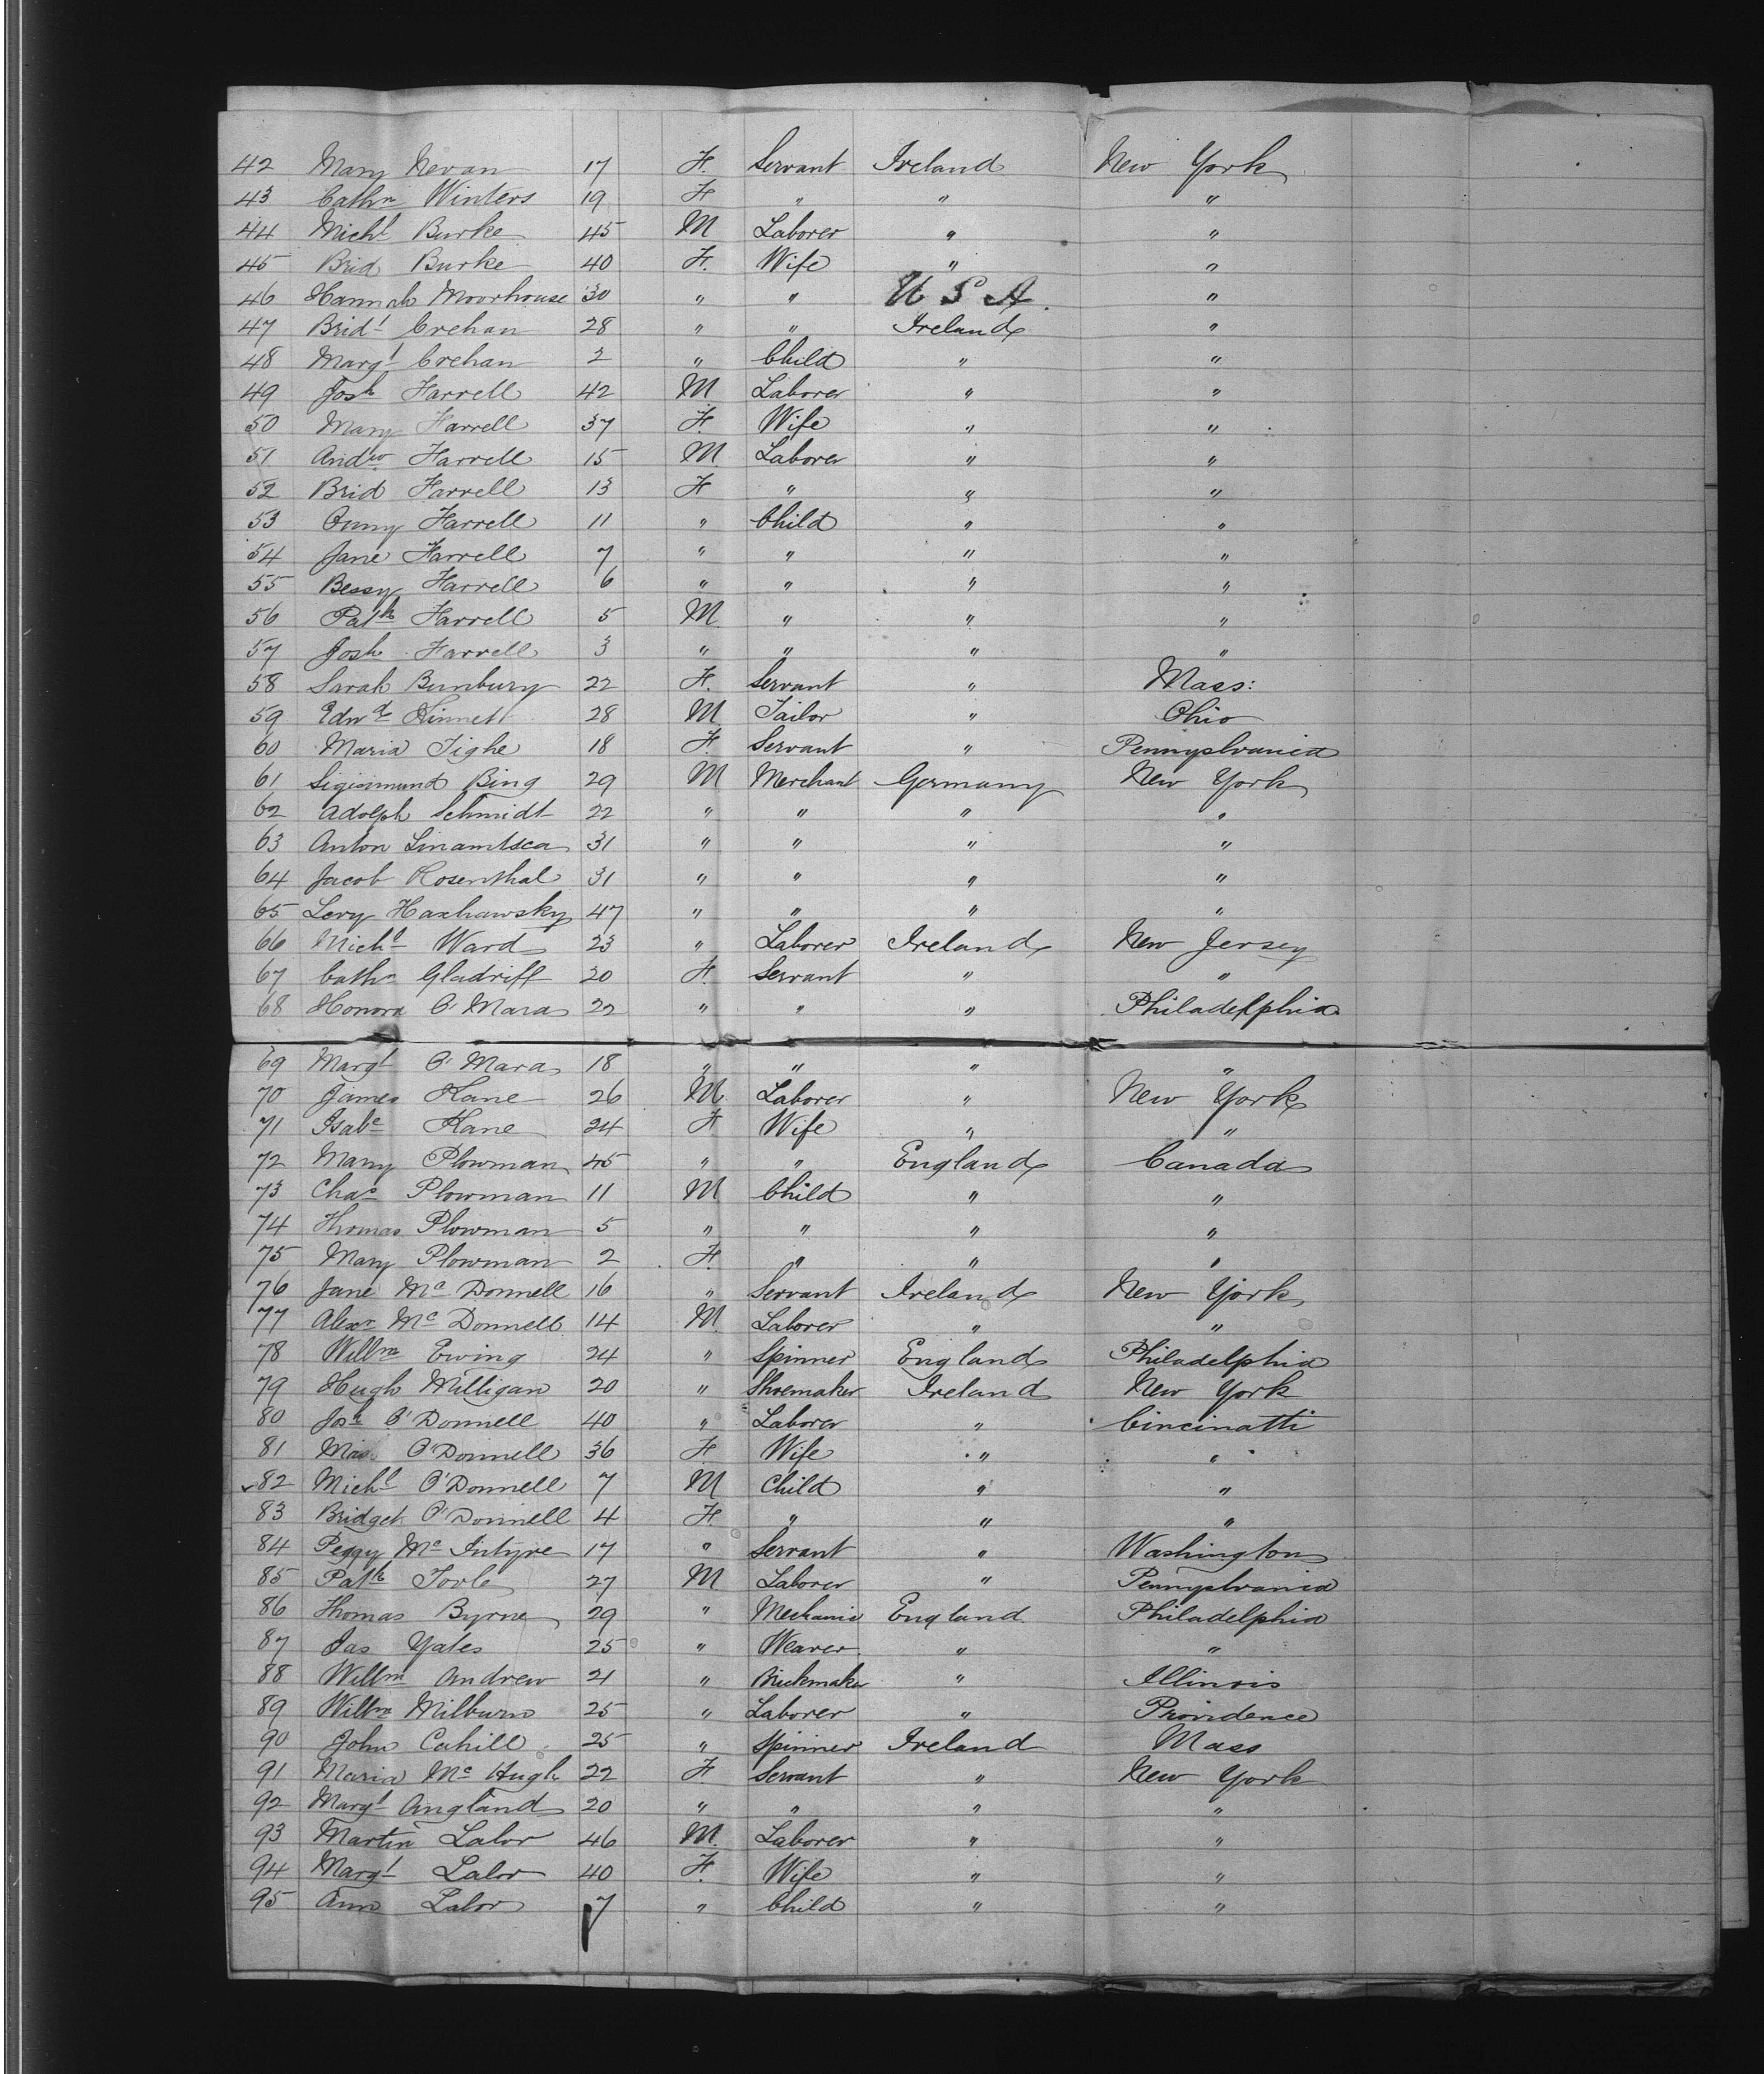 42 Mary Nevan 17 F. Servant Ireland New York
43 Cathn Winters 19 F " " "
44 Michl Burke 45 M Laborer " "
45 Brid Burke 40 F. Wife " "
46 Hannah Moorhouse 30 " " U S A. "
47 Bridt Crehan 28 " " Ireland "
48 Margt Crehan 2 " Child " "
49 Josh Farrell 42 M Laborer " "
50 Mary Farrell 37 F. Wife " "
51 Andw Farrell 15 M Laborer " "
52 Brid Farrell 13 F " " "
53 Farrell 11 " Child " "
54 Jane Farrell 7 " " " "
55 Bessy Farrell 6 " " " "
56 Patk Farrell 5 M " " "
57 Josh Farrell 3 " " " "
58 Sarah Bunbury 22 F. Servant " Mass:
59 Edwd Kinnett 28 M Tailor " Ohio
60 Maria Tighe 18 F. Servant " Pennyslvania
61 Sigismund Bing 29 M Merchant Germany New York
62 Adolph Schmidt 22 " " " "
63 Anton Linamtsca 31 " " " "
64 Jacob Rosenthal 31 " " " "
65 Levy Haxhawsky 47 " " " "
66 Michl Ward 23 " Laborer Ireland New Jersey
67 Cathn Gladriff 20 F. Servant " "
68 Honora O'Mara 22 " " " Philadelphia
69 Margt O'Mara 18 " " " "
70 James Kane 26 M Laborer " New York
71 Isabe Kane 24 F Wife " "
72 Mary Plowman 45 " " England Canada
73 Chas Plowman 11 M Child " "
74 Thomas Plowman 5 " " " "
75 Mary Plowman 2 F. " " "
76 Jane Mc Donnell 16 " Servant Ireland New York
77 Alexr Mc Donnell 14 M Laborer " "
78 Willm Ewing 24 " Spinner England Philadelphia
79 Hugh Milligan 20 " Shoemaker Ireland New York
80 Josh O'Donnell 40 " Laborer " Cincinatti
81 O'Donnell 36 F Wife " "
82 Michl O'Donnell 7 M Child " "
83 Bridget O'Donnell 4 F. " " "
84 Peggy Mc Intyre 17 " Servant " Washington
85 Patk Toole 27 M Laborer " Pennyslvania
86 Thomas Byrne 29 " Mechanic England Philadelphia
87 Jas Yates 25 " Weaver " "
88 Willm Andrew 21 " Brickmaker " Illinois
89 Willm Milburn 25 " Laborer " Providence
90 John Cahill 25 " Spinner Ireland Mass
91 Maria Mc Hugh 22 F. Servant " New York
92 Margt Angland 20 " " " "
93 Martin Lalor 46 M Laborer " "
94 Margt Lalor 40 F. Wife " "
95 Ann Lalor 7 " Child " "